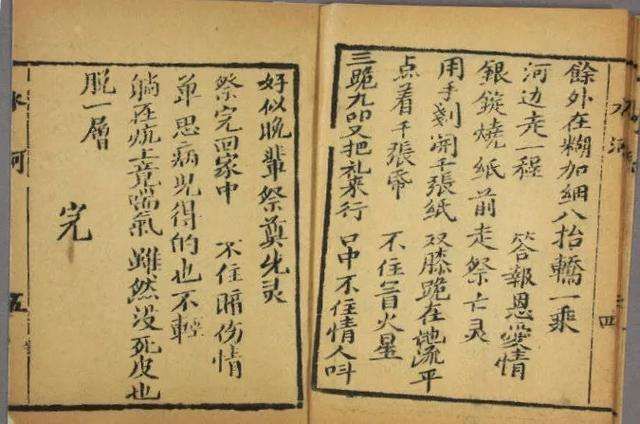 餘外在糊加綢八抬轎一乘
河边走一程 答報恩愛情
銀錠燒紙前走祭亡灵
用手剡開千張紙 双膝跪在地流平
点着千張帋 不住冒火星
三跪九叩又把礼来行 口中不住情人叫
四
好似晚輩祭奠先灵
祭完回家中 不住暗伤情
单思病児得的也不輕
躺在炕上竟喘气 雖然没死皮也
脱一層
完
河 五